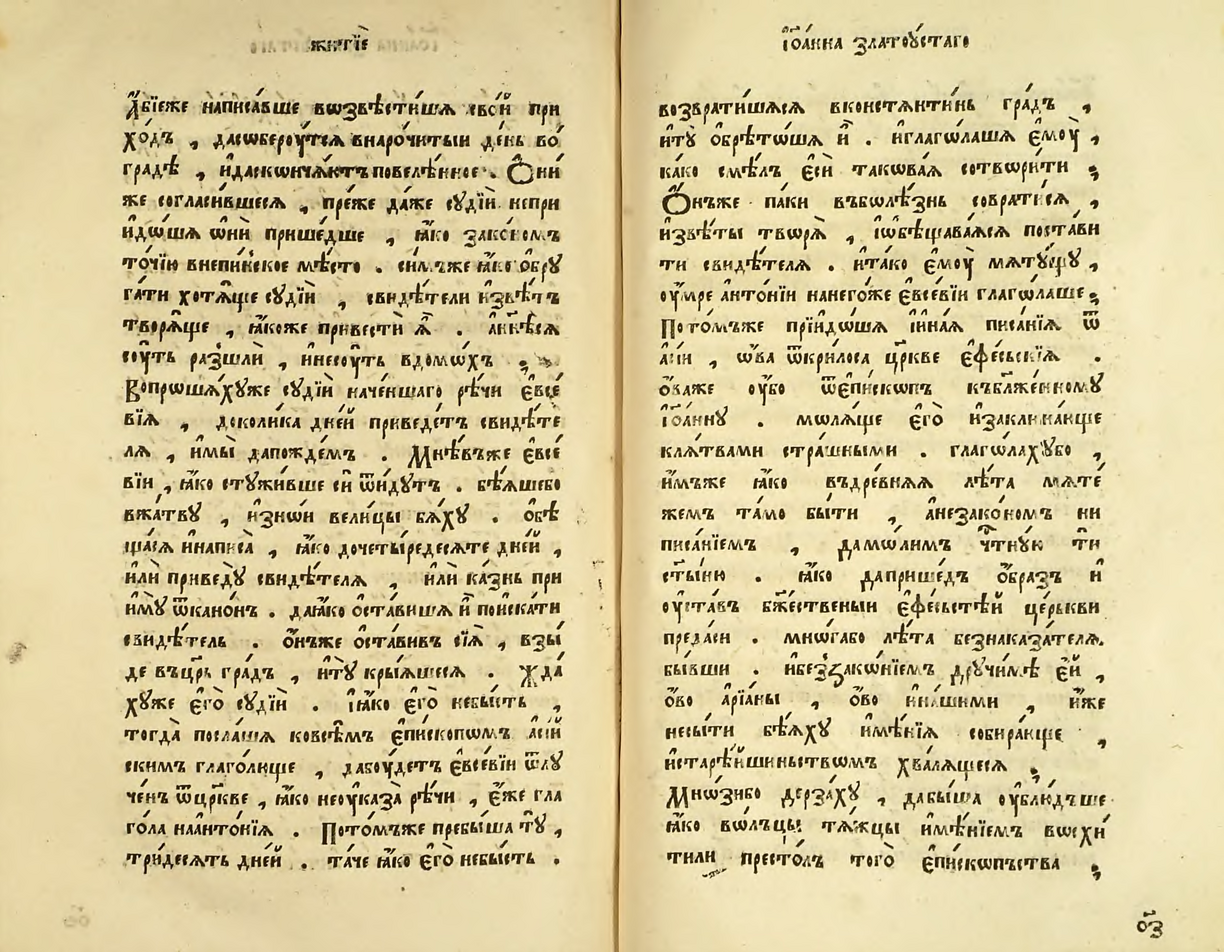 житїѐ
А҆бїеже написа́вше вѡзвѣсти́шѧ свѡи҆̀ при
хо́дъ , даѡсберꙋ́тсѧ внарочи́тыи де́нь во́
гра́дѣ , и҆даскѡнча́ютъ повелѣ́нное . Ѻ҆ни́
же согласи́вшесѧ , пре́же да́же сꙋдїи҆̀ непри
и҆дѡ́шѧ ѡ҆ни́ прише́дше , ꙗ҆́ко зако́номъ
то́чїю внепи́нское мѣ́сто . си́мъже ꙗ҆́ко ѻ҆брꙋ
га́ти хотѧ́ще сꙋдїи҆̀ , свидѣ́тели и҆звѣ́тъ
творѧ́ще , ꙗ҆́коже привестѝ ѧ҆̀ . а҆ннѣ́сѧ
соу́ть разшлѝ , и҆несоу́ть вдомѡ́хъ ;
Вопрѡша́хꙋже сꙋдїи҆̀ наче́ншаго рѣ́чи є҆ѵсе́
вїѧ , доколи́ка дне́й приведе́тъ свидѣ́те
лѧ , и҆мы̀ дапожде́мъ . Мнѣ́въже є҆ѵсе́
вїи , ꙗ҆́ко стꙋжи́вше си ѿи҆́дꙋтъ . бѣ́ѧшебо
вжа́твꙋ , и҆зно́и вели́цы бѧ́хꙋ . ѻ҆бѣ
ща́сѧ и҆написа̀ , ꙗ҆́ко дочеты́редесѧте дне́й ,
и҆лѝ приведꙋ̀ свидѣ́телѧ , и҆лѝ ка́знь при
и҆мꙋ̀ ѿкано́нъ . даꙗ҆́ко ѻ҆ста́вишѧ и҆̀ поиска́ти
свидѣ́тель . ѻ҆́нъже ѻ҆ста́вивъ сїѧ̀ , взы́
де въцр҃ь гра́дъ , и҆тꙋ̀ кры́ѧшесѧ . Жда́
хꙋже є҆го̀ сꙋдїи҆̀ . І҆ꙗ҆́ко є҆го̀ небы́сть ,
тогда̀ посла́шѧ ковсѣ́мъ є҆пи́скопѡмъ а҆сі́й
скимъ глаго́люще , дабоу́детъ є҆ѵсе́вїи ѿлꙋ
че́нъ ѿцр҃кве , ꙗ҆́ко неоу҆каза̀ рѣ́чи , є҆́же гла
го́ла наа҆нто́нїѧ . Пото́мъже пребы́ша тꙋ̀ ,
три́десѧть дне́й . та́че ꙗ҆́ко є҆го̀ небы́сть .
і҆ѡа́нна златоꙋ́стаго
возврати́шѧсѧ вконстѧнти́нь гра́дъ ,
и҆тꙋ̀ ѻ҆брѣто́шѧ и҆̀ . и҆глаго́лашѧ є҆моу̀ ,
ка́ко смѣ́лъ є҆сѝ такова́ѧ сотвори́ти ;
Ѻ҆́нъже па́ки въболѣ́знь соврати́сѧ ,
и҆звѣ́ты творѧ̀ , і҆ѡбѣщава́ѧсѧ поста́ви
ти свидѣ́телѧ . и҆та́ко є҆моу̀ мѧтꙋ́щꙋ ,
оу҆́мре а҆нто́нїи нанего́же є҆ѵсе́вїи глаго́лаше ;
Пото́мъже прїидо́шѧ и҆на́ѧ писа́нїѧ ѿ
а҆сі́и , ѡ҆́ва ѿкри́лоса цр҃кве є҆фе́сьскїѧ .
ѻ҆́важе оу҆́бо ѿє҆пи́скопъ къбл҃же́нномꙋ
і҆ѡа́ннꙋ . молѧ́ще є҆го̀ и҆заклина́юще
клѧ́твами стра́шными . глаго́лахꙋбо ,
и҆́мъже ꙗ҆́ко въдре́внѧѧ лѣ́та мѧте
же́мъ та́мо бы́ти , а҆незако́номъ ни
писа́нїемъ , да́молимъ чт҃нꙋю ти
ст҃ы́ню . ꙗ҆́ко даприше́дъ ѻ҆́бразъ и҆
оу҆ста́въ бж҃е́ственыи є҆фе́сьстѣй це́рькви
преда́си . мно́габо лѣ́та безнаказа́телѧ
бы́вши . и҆беззако́нїемъ дрꙋчи́мѣ є҆́й ,
ѻ҆́во а҆рїа́ны , ѻ҆́во на́шими , и҆́же
несы́ти бѣ́ѧхꙋ и҆мѣ́нїѧ собира́юще ,
и҆старѣ́йшиньствѡмъ хвалѧ́щесѧ ;
Мно́зибо дерза́хꙋ , дабы́ша оу҆блю́дъше
ꙗ҆́ко во́лъцы тѧ́жцы и҆мѣ́нїемъ восхи́
тили престо́лъ того̀ є҆пи́скопьства ;
о҃з